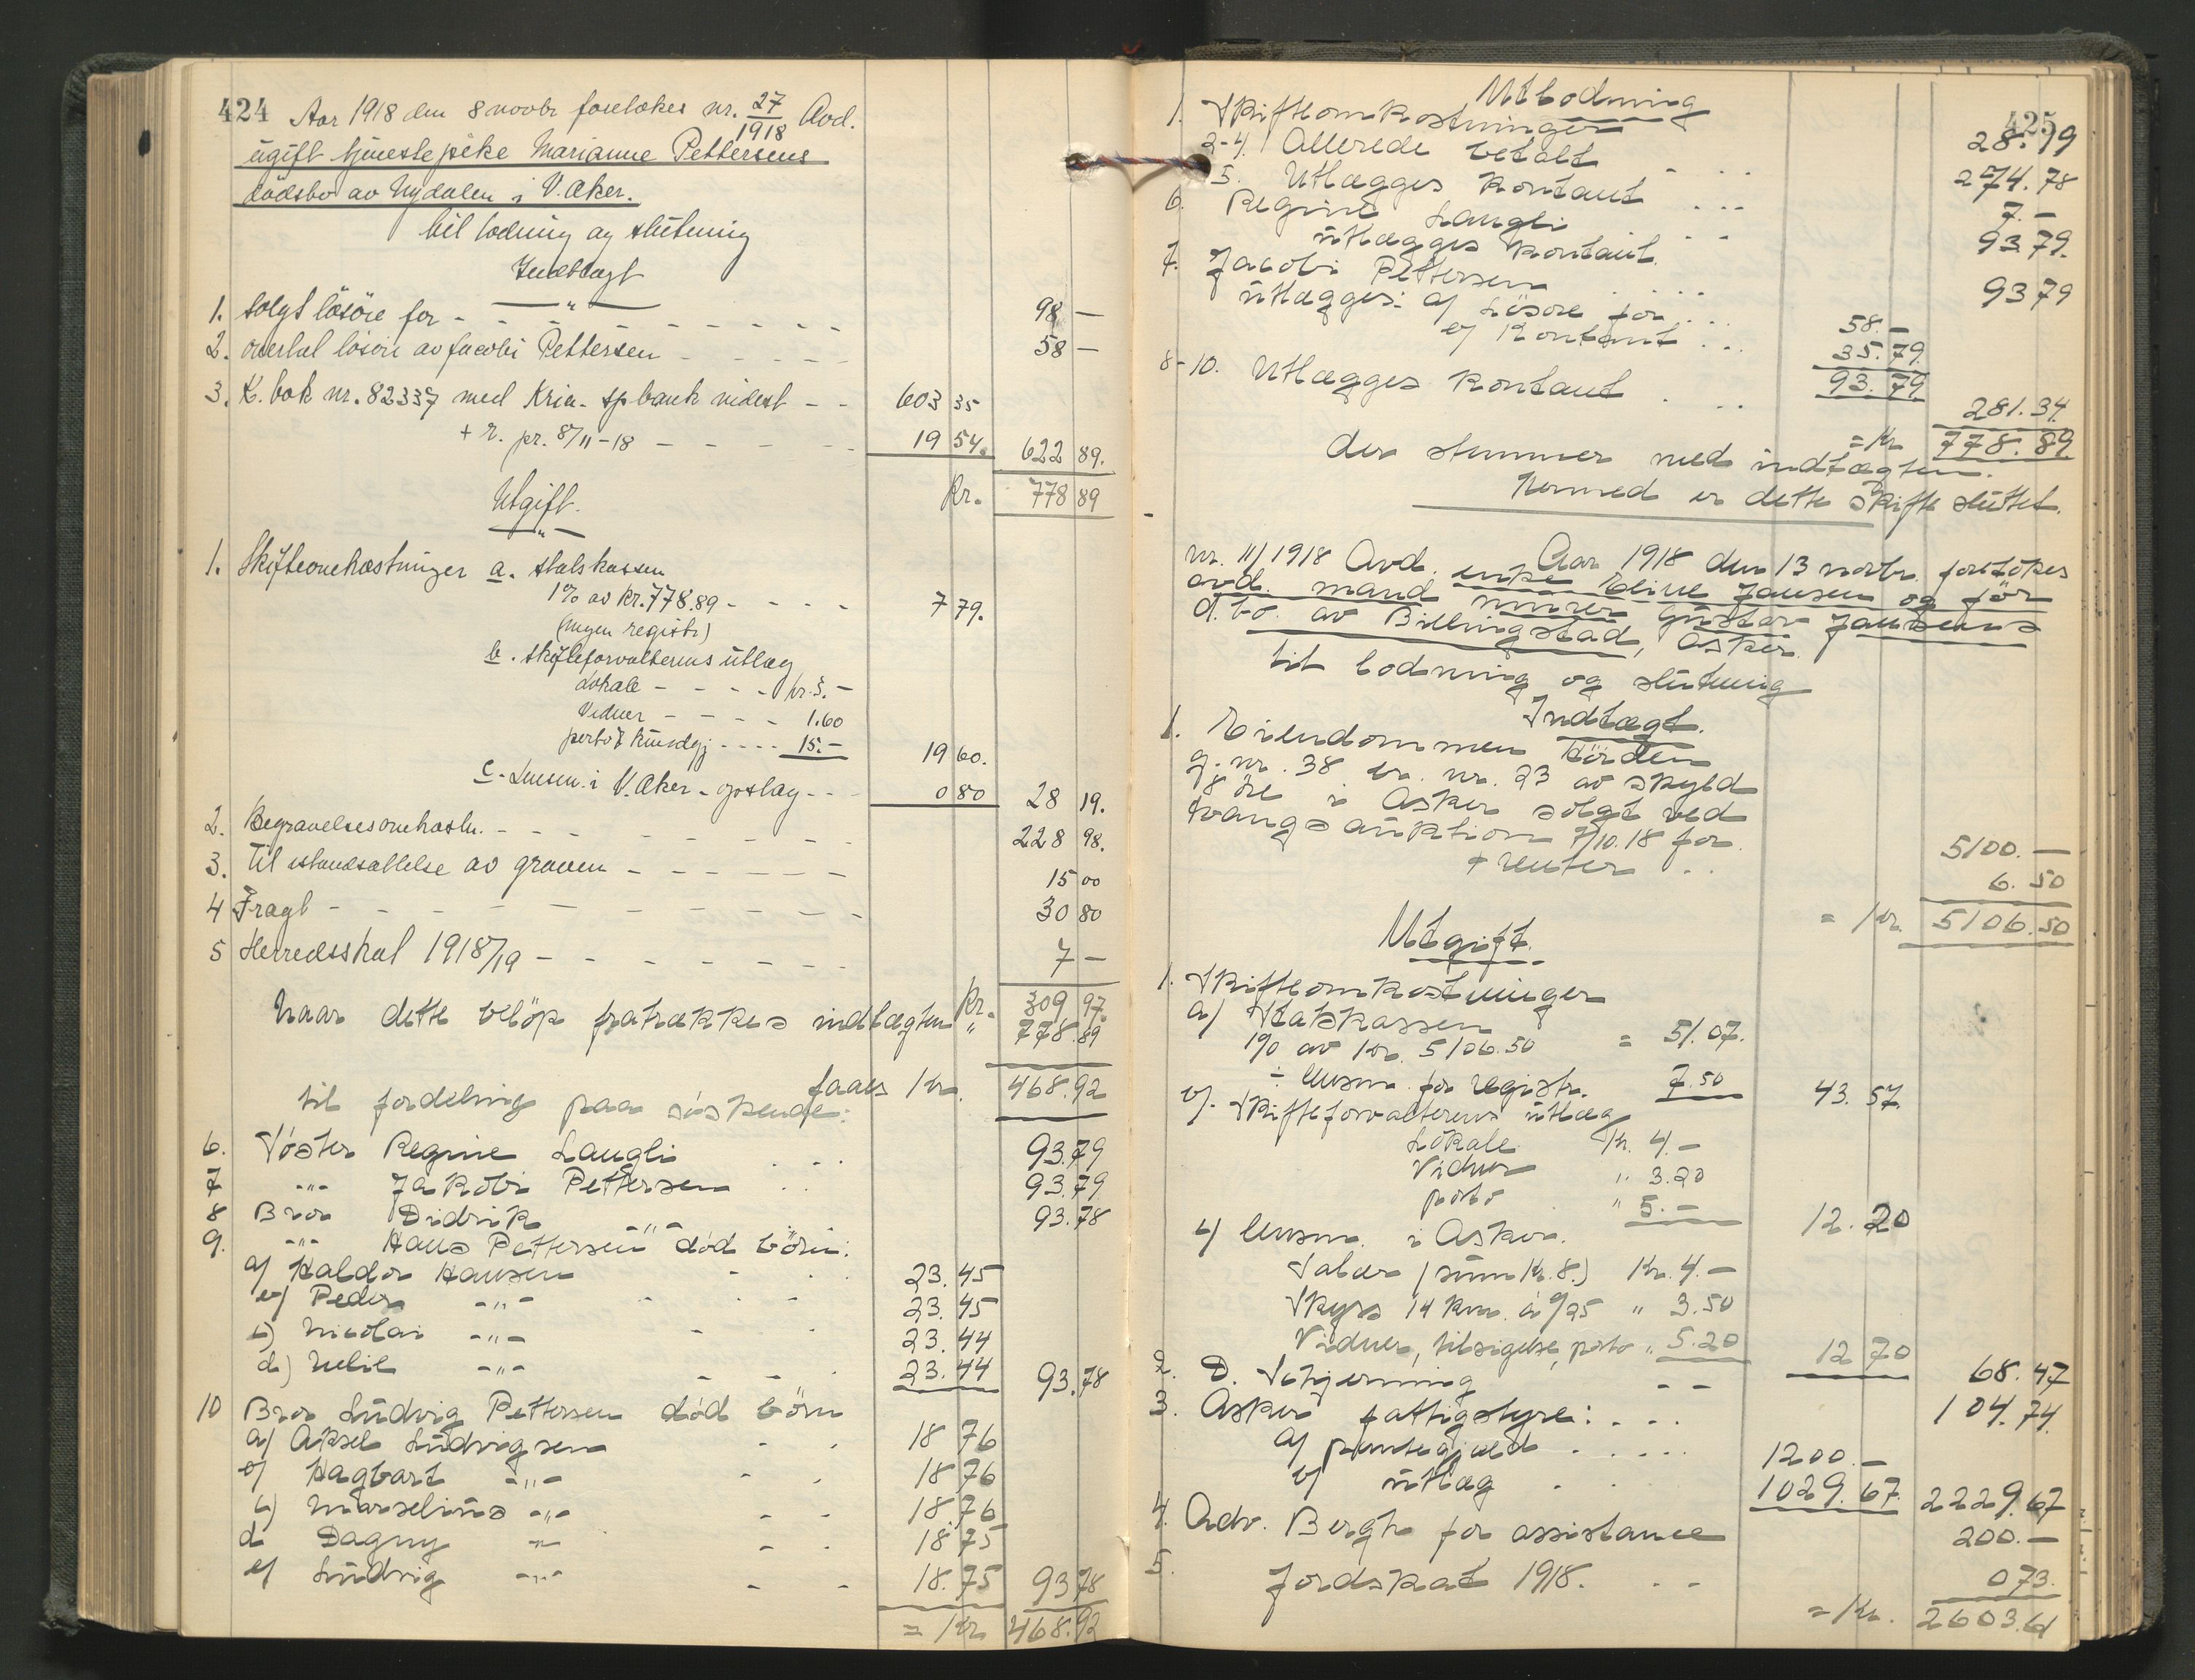 424 Aar 1918 den 8 novbr foretokes nr. 27/1918 Avd.
ugift tjenestepike Marianne Pettersens
dödsbo av Nydalen i V. Aker.
til lodning og slutning
Indtægt
1. Solgt lösöre for - - - 98 -
2. overtat lösöre av Jacobi Pettersen - - - 58 -
3. K. bok nr. 82337 med Kria. spbank indest - - 603 35
+ r. pr. 8/11-18 - - - 19 54. 622 89.
Utgift. Kr. 778 89
1. Skifteomkostninger a. statskassen
1% av kr. 778.89 - - - 7 79.
(ingen registr)
b. skifteforvalterens utlæg
lokale - - - - kr. 3.-
Vidner - - - - 1.60
porto & kundgj. - - - 15.- 19 60.
c. Lensm. i V. Aker - opslag - - 0 80 28 19.
2. Begravelsesomkostn. - - - 228 98.
3. Til istandsættelse av graven - - - 15 00
4 Fragt - - - 30 80
5 Herredsskat 1918/19 - - - 7 -
Kr. 309 97.
Naar dette belöp fratrækkes indtægten " 778.89
faaes Kr. 468.92
til fordeling paa söskende:
6. Söster Regine Langli . . . 93.79
7 -"- Jakobi Pettersen . . 93.79
8 Bror Didrik -"- 93.78
9. -"- Hans Pettersen död börn:
a) Haldor Hansen - . 23.45
b) Peder -"- - - 23.45
c) Nicolai -"- - . 23.44
d) Nelie -"- - - . 23.44 93.78
10 Bror Ludvig Pettersen död börn
a) Aksel Ludvigsen - . 18 76
b) Hagbart -"- - . 18 76
c) Marselius -"- - - 18 76
d Dagny -"- - . 18.75
e) Ludvig -"- - - 18.75 93 78
= Kr 468.92
425
Utlodning
1. Skifteomkostninger 28.19
2-4. Allerede betalt - . . 274.78
5. Utlægges kontant . . . 7.-
6. Regine Langli - - 93.79.
utlægges kontant.
7. Jacobi Pettersen . . . . 93 79
utlægges: a) Lösöre for . . . 58.-
b) Kontant . . . 35.79.
93.79
8-10. Utlægges kontant . . . 281.34.
= Kr 778.89
der stemmer med indtægten.
Hermed er dette skifte sluttet.
nr. 11/1918 Avd. Aar 1918 den 13 novbr. foretokes
avd. mand enke Eline Jansen og för
murer Gustav Jansens
d.bo. av Billingstad, Asker.
til lodning og slutning
Indtægt.
1. Eiendommen Hörden
g. nr. 38 br. nr. 23 av skyld
18 öre i Asker solgt ved
tvangsauktion 7/10.18 for 5100.-
+ renter . . 6.50
= Kr. 5106.50
Utgift.
1. Skifteomkostninger
a) Statskassen
1% av kr. 5106.50 = 51.07.
÷ lensm. for registr. 7.50 43.57.
b). Skifteforvalterens utlæg
Lokale Kr. 4.-
Vidner " 3.20
porto " 5.- 12.20
c) Lensm. i Asker.
Salær (sum Kr. 8.) Kr. 4.-
Skyss 14 km. á 0/25 " 3.50
Vidner, tilsigelse, porto " 5.20 12 70 68.47
2. D. - - 104.74.
3. Asker fattigstyre: . . .
a) pantegjæld . . . . . 1200.-
b) utlæg . . 1029.67. 2229.67
4. Adv. Bergh for assistance 200.-
5. Jordskat 1918. . - 0 73.
= Kr. 2603.61